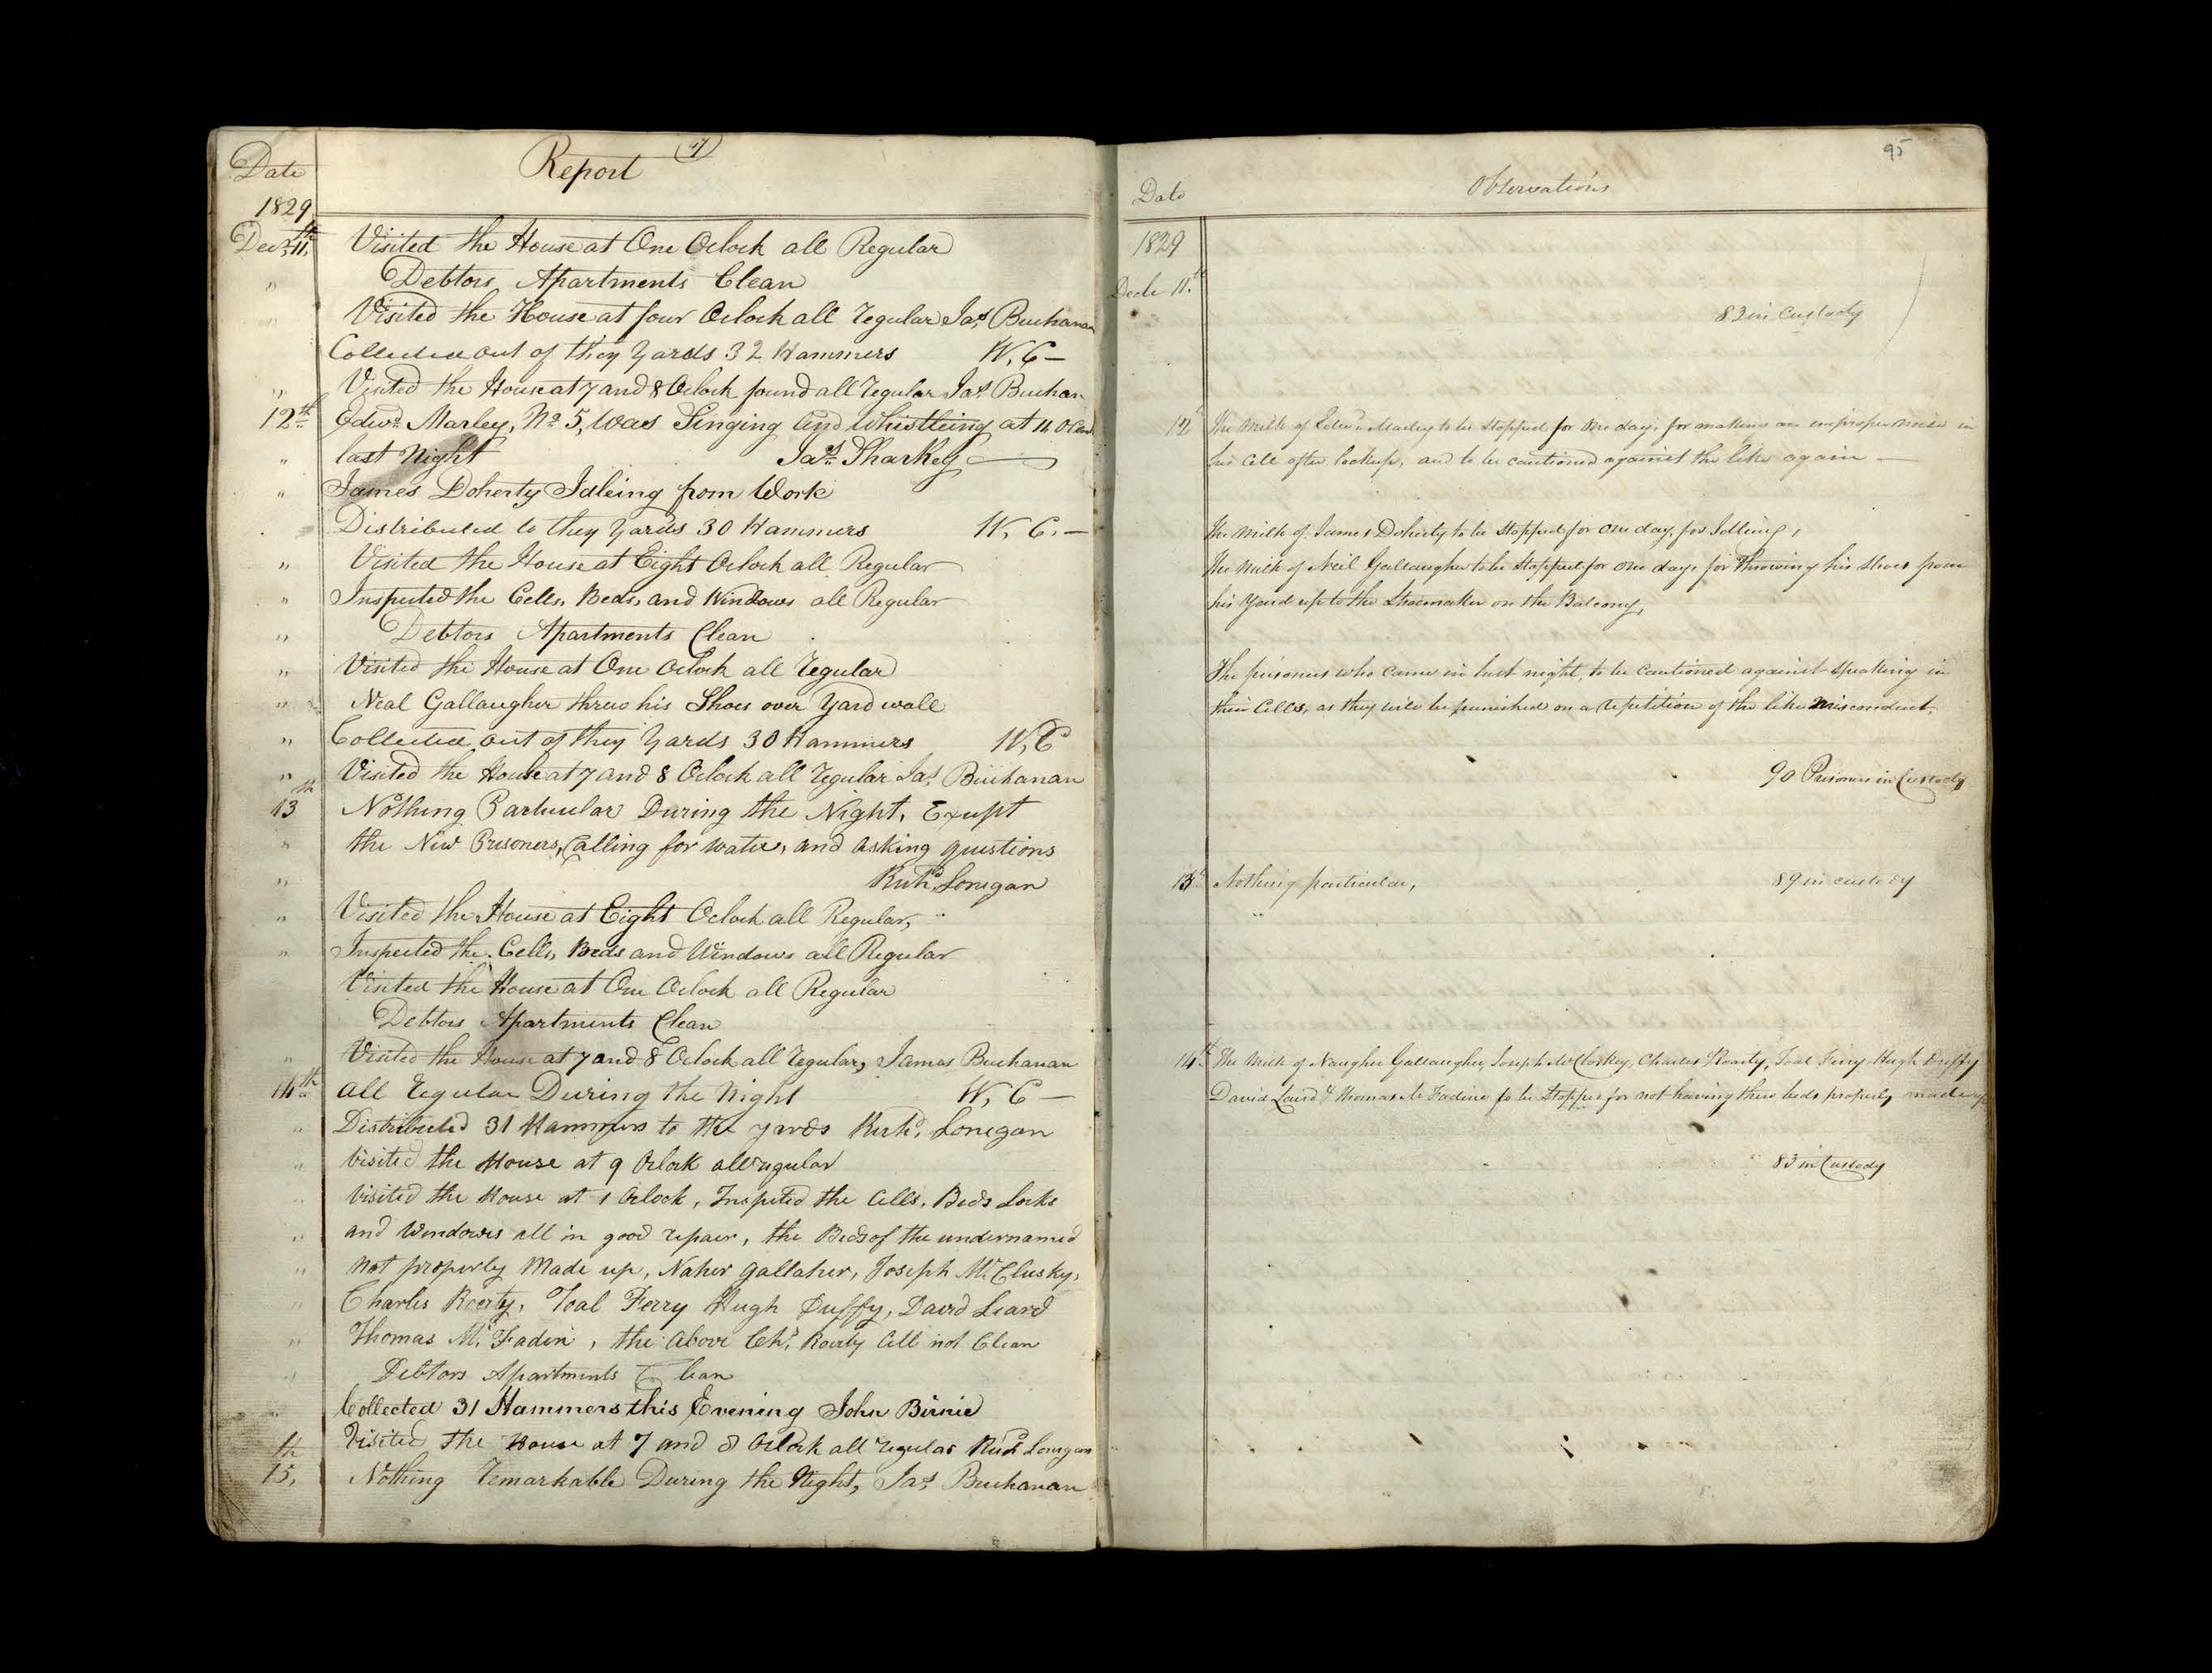 Date
Report
1829
Decr. 11th Visited the House at One Oclock all Regular
" Debtors Apartments Clean
" Visited the House at four Oclock all regular Jas. Buchanan
Collected out of they Yards 32 Hammers W. C —
" Visited the House at 7 and 8 Oclock found all regular Jas. Buchan
12th Edwd. Marley, No 5, was Singing and Whistleing at 11 O
" last Night Jas. Sharkey
" James Doherty Idleing from Work
Distributed to they Yards 30 Hammers W. C. —
" Visited the House at Eight Oclock all Regular
" Inspected the Cells, Beds, and Windows all Regular
" Debtors Apartments Clean
" Visited the House at One Oclock all regular
" Neal Gallaugher threw his Shoes over Yard wall
" Collected out of they Yards 30 Hammers W, C
" Visited the House at 7 and 8 Oclock all regular Jas. Buchanan
13th Nothing Particular During the Night, Exept
" the New Prisoners, Calling for water, and asking questions
" Richd. Lonegan
" Visited the House at Eight Oclock all Regular,
" Inspected the Cells, Beds and Windows all Regular
Visited the House at One Oclock all Regular
Debtors Apartments Clean
" Visited the House at 7 and 8 Oclock all regular, James Buchanan
14th all regular During the Night W, C —
" Distributed 31 Hammers to the yards Richd. Lonegan
" Visited the House at 9 Oclock all regular
" Visited the House at 1 Oclock, Inspected the Cells, Beds Locks
" and Windows all in good repair, the Beds of the undernamed
" not properly Made up, Naher Gallaher, Joseph McClusky,
" Charles Roerty, Toal Ferry Hugh Duffy, David Leard
" Thomas Mc Faden, the above Chs. Roerty Cell not Clean
" Debtors Apartments Clean
" Collected 31 Hammers this Evening John Birnie
Visited the House at 7 and 8 Oclock all regular Richd Lonegan
15th, Nothing remarkable During the Night, Jas. Buchanan
95
Date
Observations
1829
Decbr 11th
83 in Custody
12th The Milk of Edwd. Marley to be Stopped for one day, for making an improper noise in
his cell after lockup, and to be cautioned against the like again —
The Milk of James Doherty to be Stopped for one day, for Idleing,
The Milk of Neil Gallaugher to be Stopped for one day, for throwing his Shoes from
his Yard up to the Shoemaker on the Balcony,
The prisoners who came in last night, to be cautioned against speaking in
their Cells, as they will be punished on a repetition of the like misconduct.
90 Prisoners in Custody
13th Nothing particular, 89 in custody
14th The Milk of Naugher Gallaugher, Joseph McCloskey, Charles Roarty, Toal Ferry Hugh Duffy
David Laird & Thomas Mc Fadine to be Stopped for not having their beds properly made up
83 in Custody